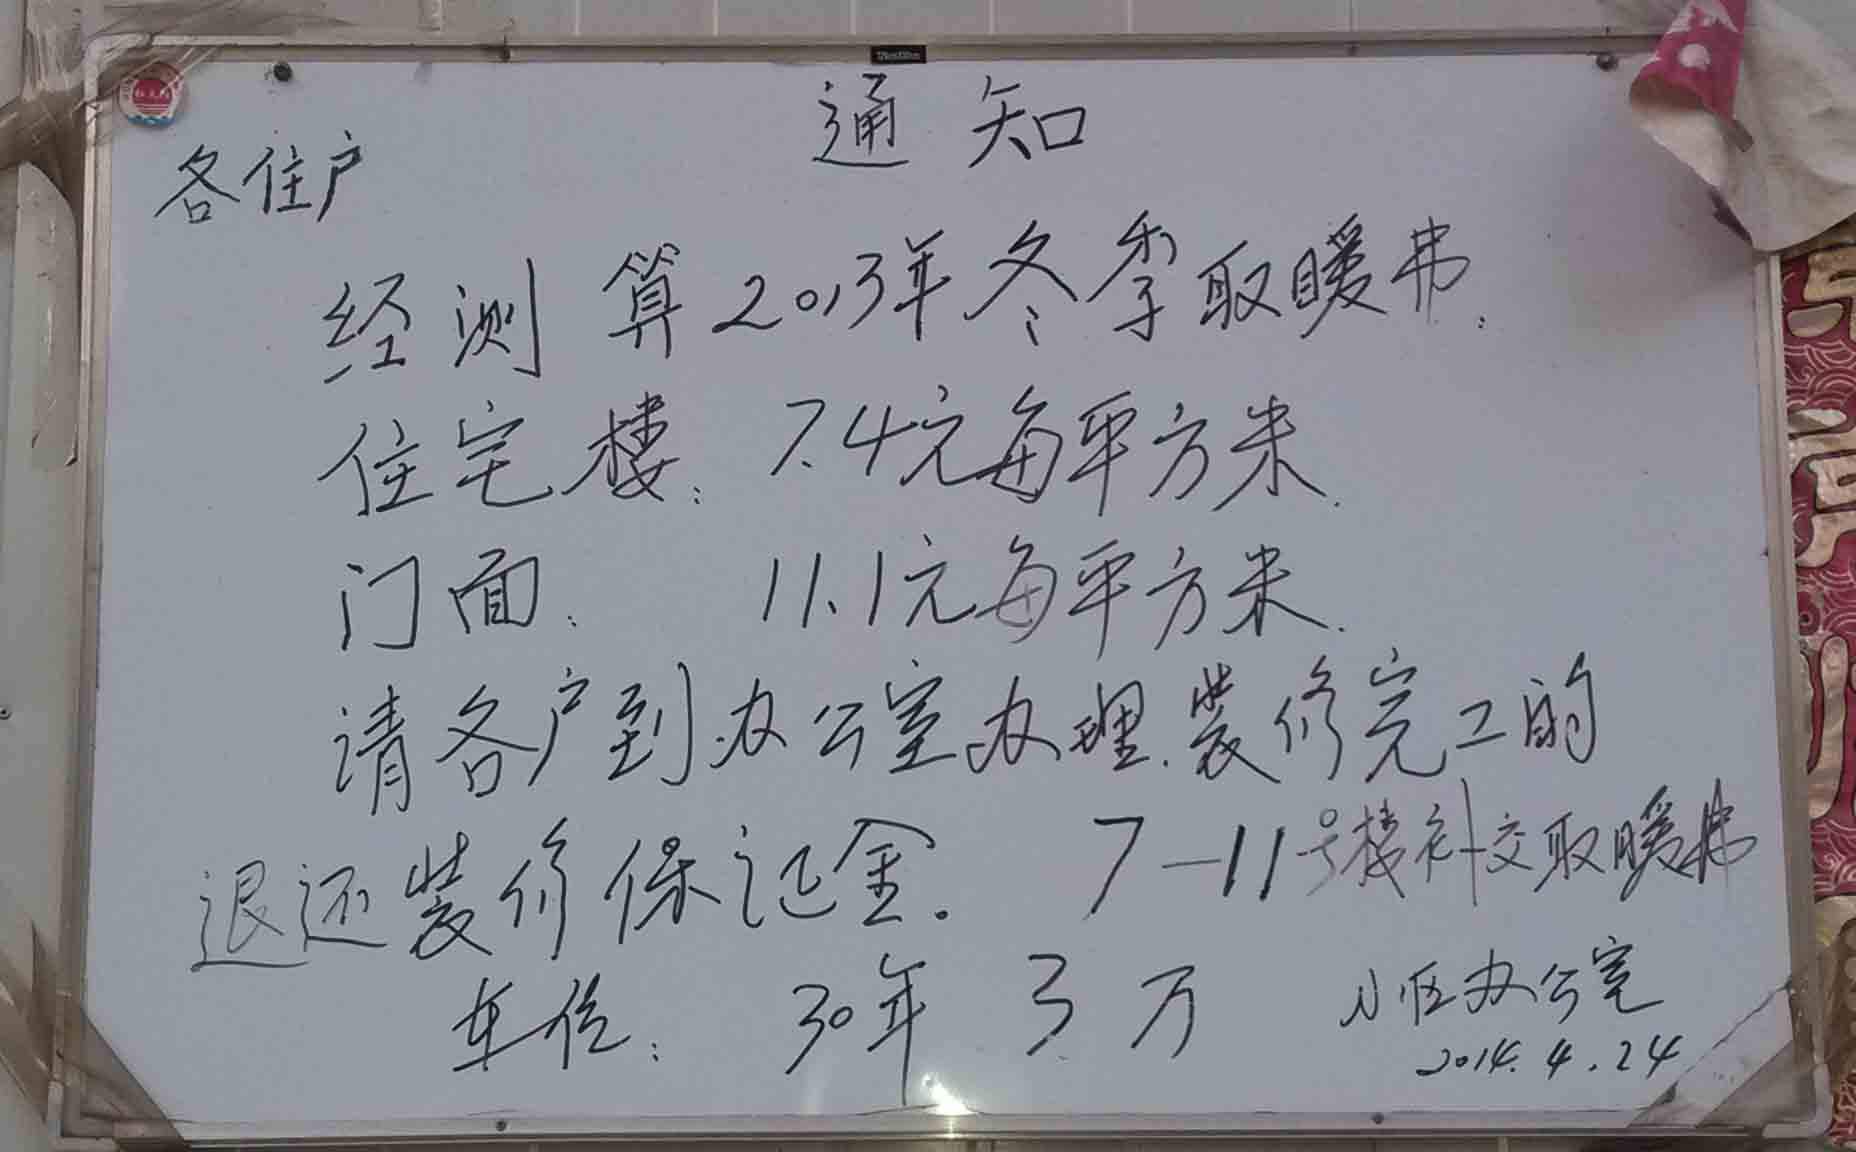 通知
各住户
经测算2013年冬季取暖费.
住宅楼: 7.4元每平方米.
门面: 11.1元每平方米.
请各户到办公室办理.装修完工的
退还装修保证金. 7—11号楼补交取暖费
车位: 30年 3万
小区办公室
2014.4.24